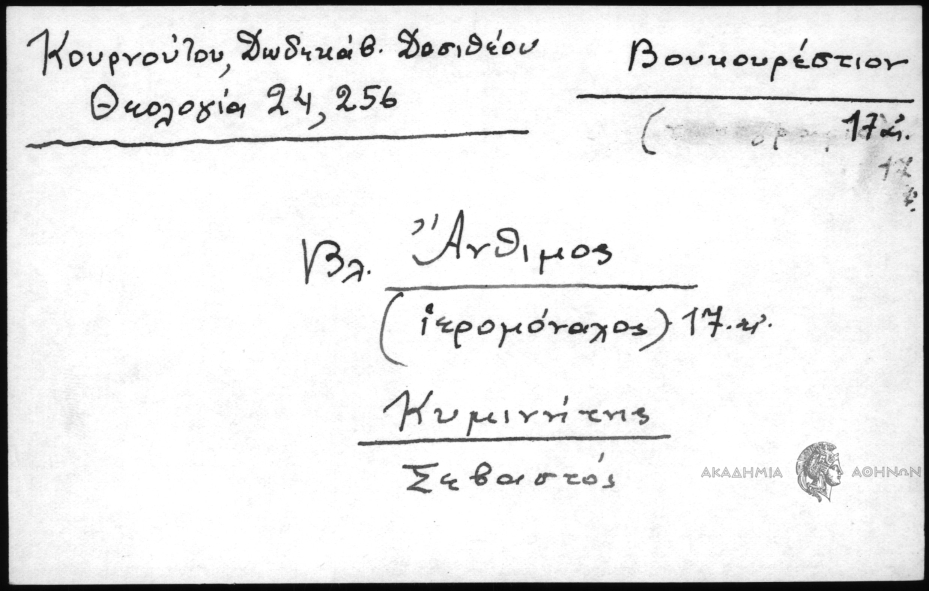 Κουρνούτου, Δωδεκάβ. Δοσιθέου
Θεολογία 24, 256
Βουκουρέστιον
17 αἰ.
17
Βλ. Ἄνθιμος
(ἱερομόναχος) 17. αἰ.
Κυμινήτης
Σεβαστός
ΑΚΑΔΗΜΙΑ ΑΘΗΝΩΝ